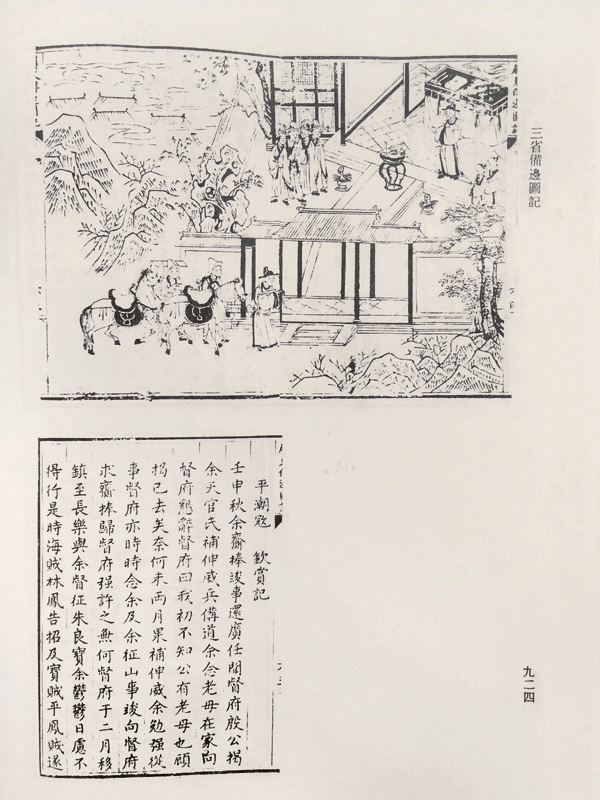 三省備邊圖記
平潮寇　欽賞記
壬申秋余齎捧竣事還廣任間督府殷公揭
余天官氏補伸威兵備道余念老母在家向
督府懇辭督府曰我初不知公有老母也顧
揭已去矣奈何未兩月果補伸威余勉强從
事督府亦時時念余及余征山事竣向督府
求齎捧歸督府强許之無何督府于二月移
鎮至長樂與余督征朱良寶余鬱鬱日慮不
得行是時海賊林鳳告招及寶賊平鳳賊遂
九二四